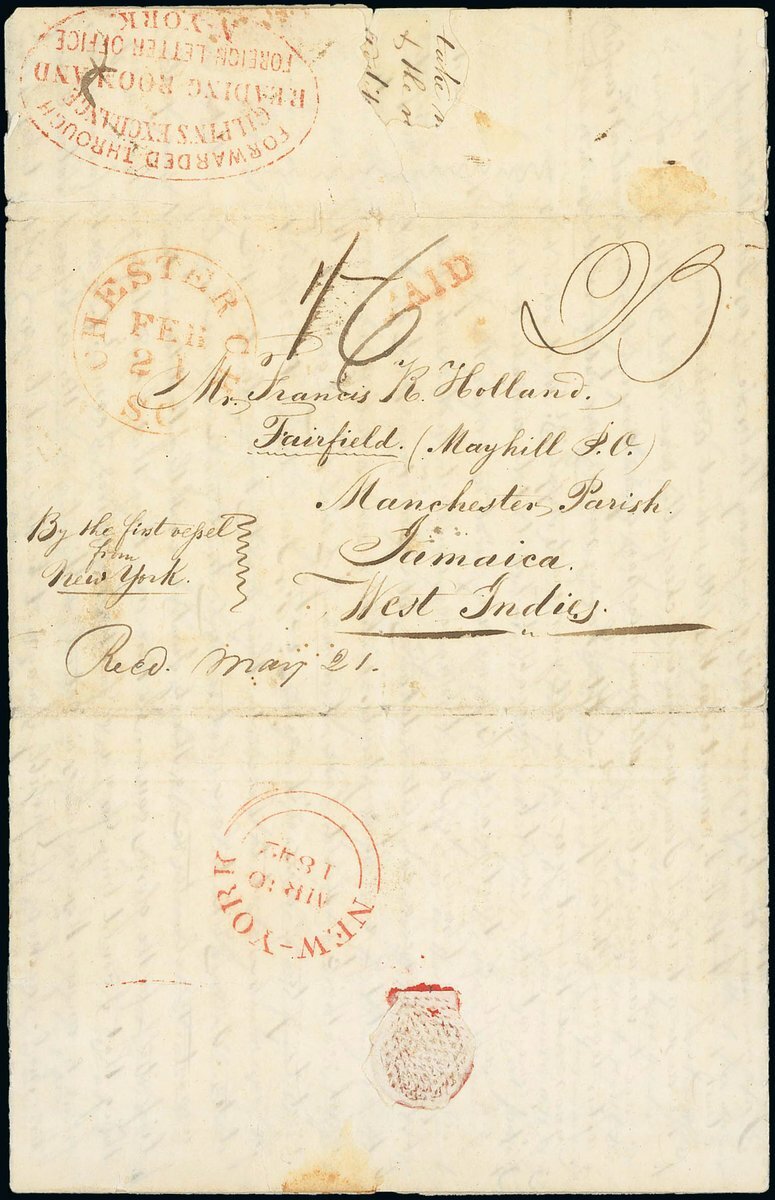 FORWARDED THROUGH
GILPIN'S EXCHANGE
READING ROOM AND
FOREIGN LETTER OFFICE
N-YORK
CHESTER C.H.
FEB
21
S.C.
PAID
Mr. Francis R. Holland.
Fairfield. (Mayhill P.O.)
Manchester Parish.
Jamaica.
West Indies.
By the first vessel
from
New York.
Recd. May 21.
NEW-YORK
MAR 10
1842